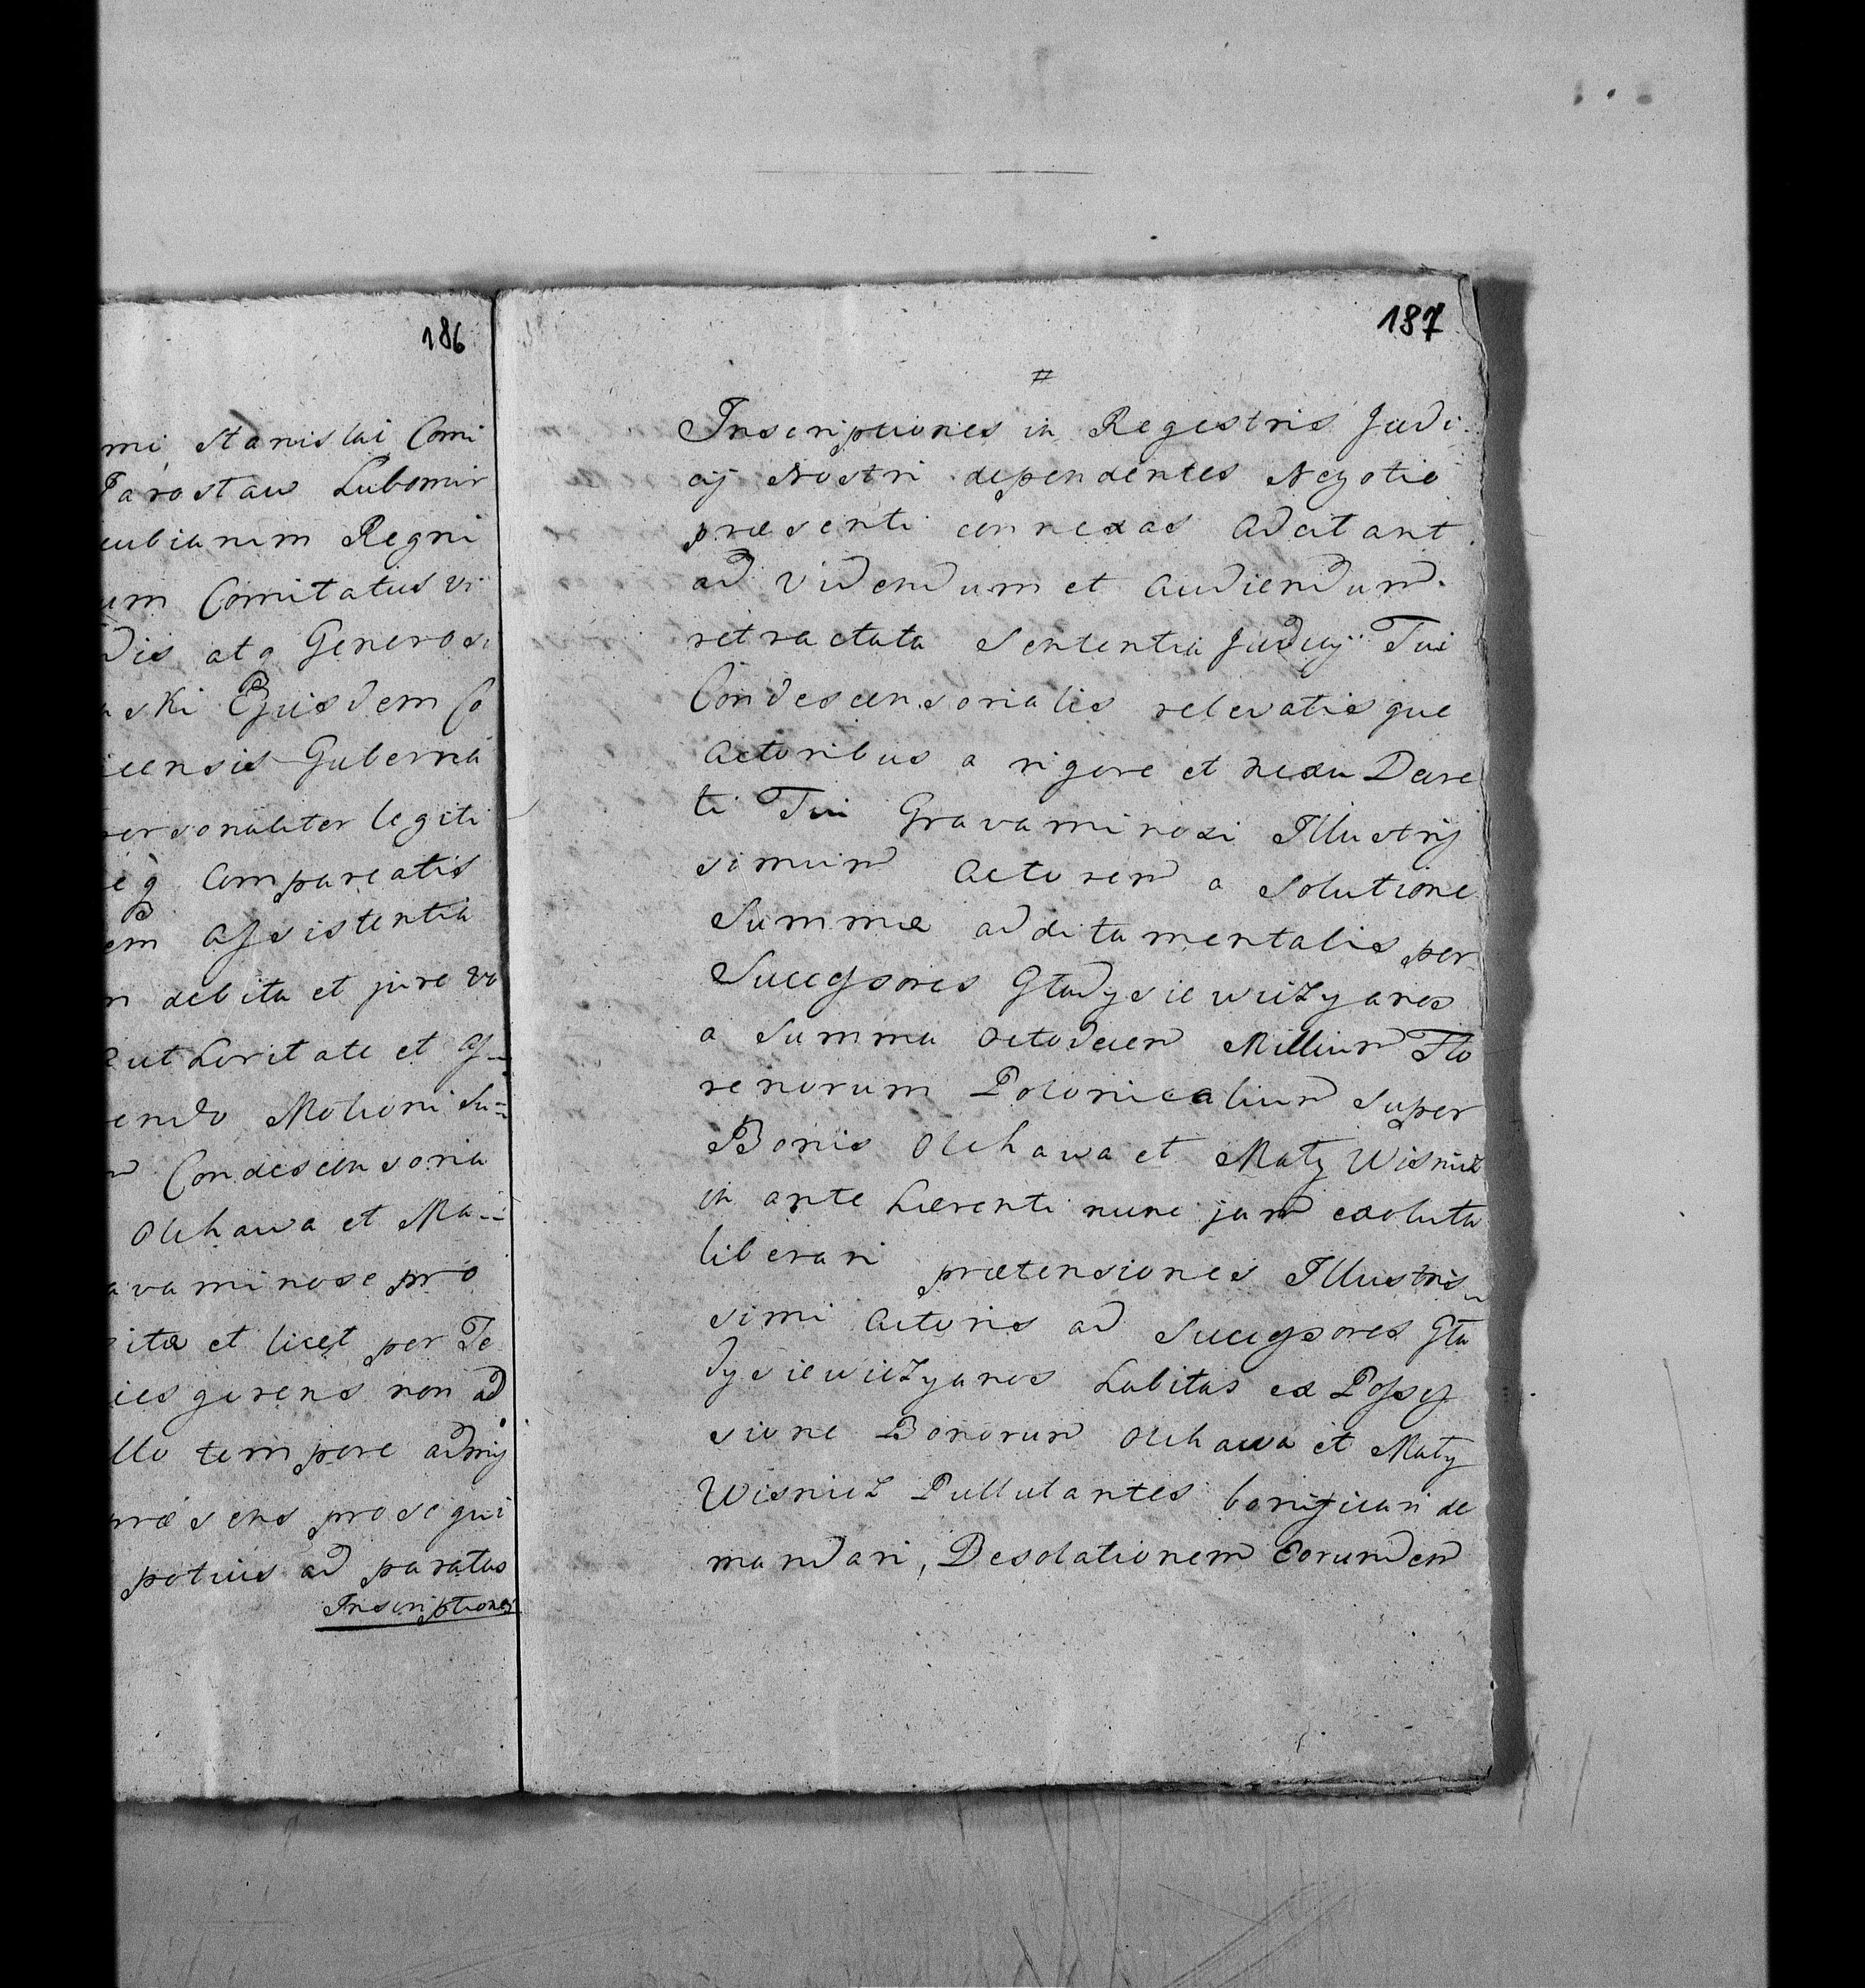 186
mi Stanislai Comi
Jarostaw Lubomir
cubianim Regni
um Comitatus Vi
dis atq Generosi
uski Ejusdem Co
icensis Guberna
personaliter legiti
eq compareatis
em assistentia
n debita et jure va
authoritate et as-
endo Motioni Su=
m Condescensoria
Olchawa et Ma--
avaminose pro
ita et licet per Te
ies gerens non ad
llo tempore admis
præsens prosequi
potius ad paratas
Inscriptiones
187
#
Inscriptiones in Regestris Judi
cij Nostri dependentes Negotio
præsenti connexas adcitant
ad videndum et audiendum
retractata Sententia Judicij Tui
Condescensorialis relevatisque
Actoribus a rigore et nexu Decre
ti Tui Gravaminosi Illustris
simum Actorem a Solutione
Summæ additamentalis per
Successores Gładysiewiczyanos
a Summa Octodecem Millium Flo
renorum Polonicalium Super
Bonis Olchawa et Mały Wisnicz
in ante hærenti nunc jam exoluta
liberari prætensiones Illustris
simi Actoris ad Successores Gła
dysiewiczyanos habitas ex Posses
sione Bonorum Olchawa et Mały
Wisnicz Pullulantes bonificari de
mandari, Desolationem Eorundem